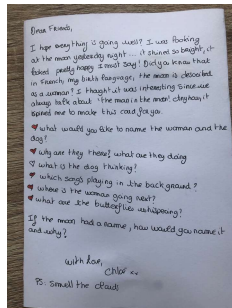 Dear Friends,
I hope everything is going well? I was looking
at the moon yesterday night... it shined so bright, it
looked pretty happy I must say! Did you know that
in French, my birth language, the moon is described
as a woman? I thought it was interesting since we
always talk about "the man in the moon". Anyhow, it
inspired me to make this card for you.
♥ what would you like to name the woman and the
dog?
♥ why are they there? what are they doing
♡ what is the dog thinking?
♥ which song is playing in the background?
♥ where is the woman going next?
♥ what are the butterflies whispering?
If the moon had a name, how would you name it
and why?
with love,
Chloé
PS: Smell the clouds